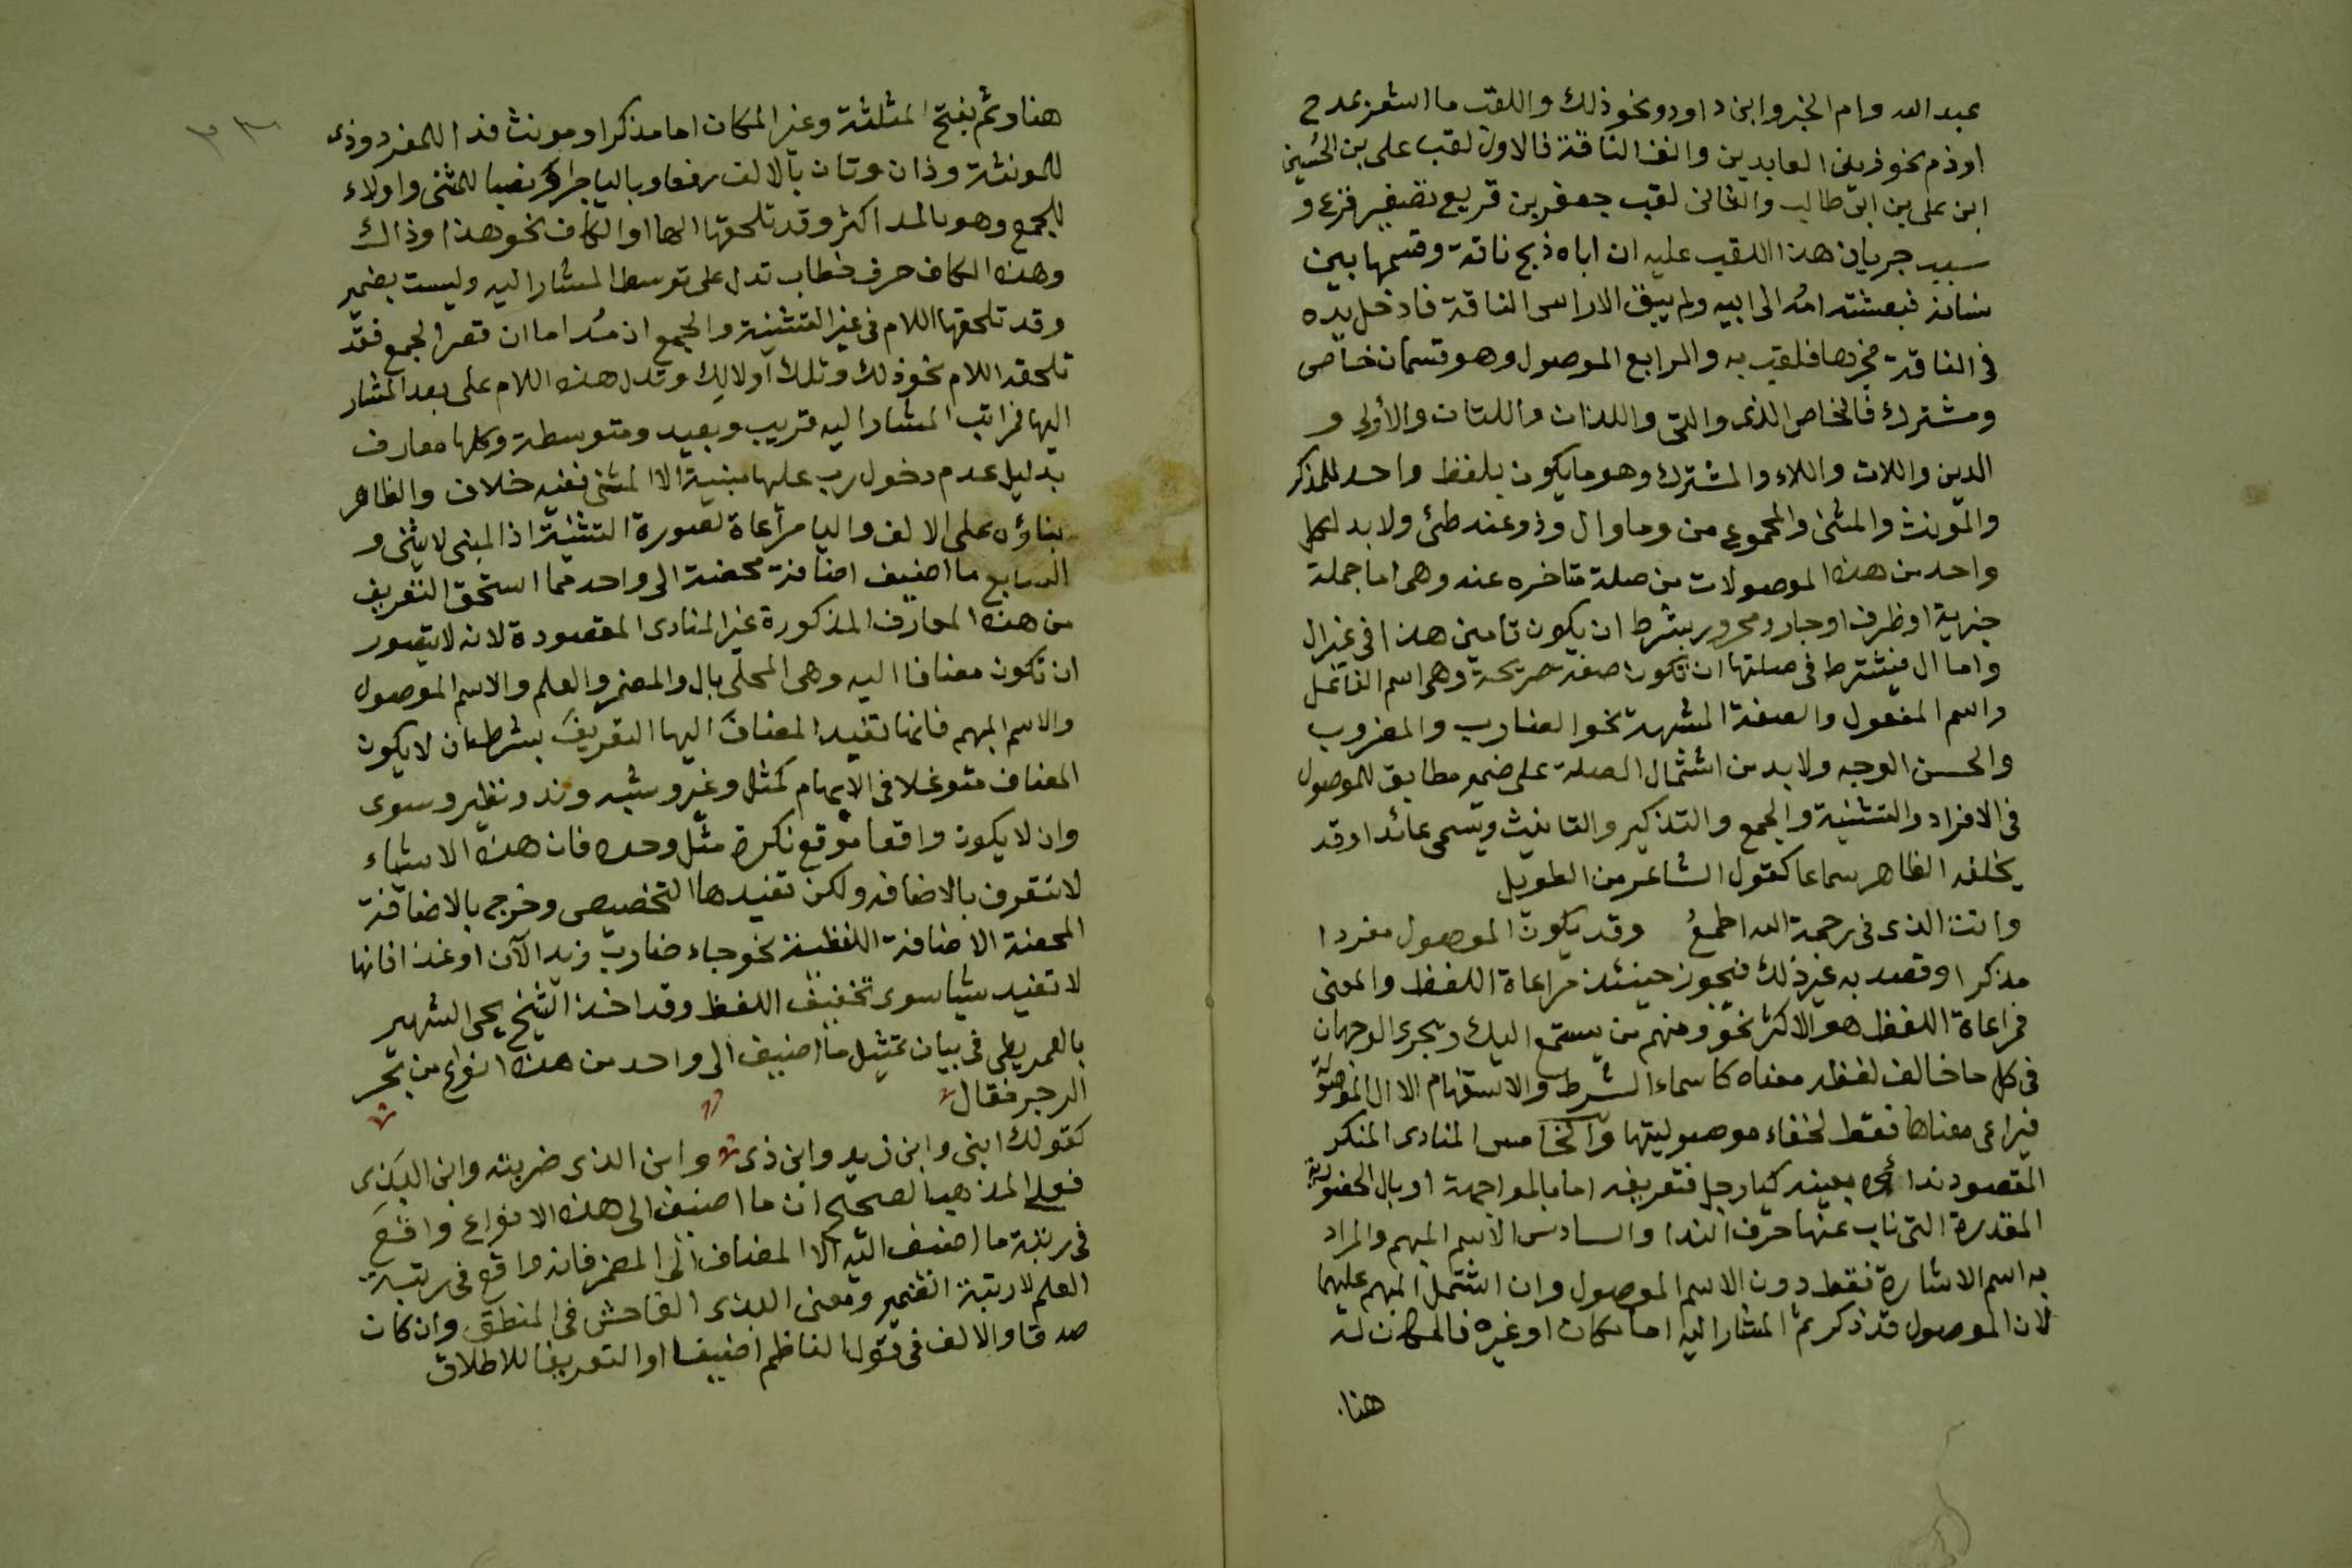 عبد الله وام الخير وابن داود ونحو ذلك واللقب ما اشعر بمدح
او ذم نحو زين العابدين وانف الناقة فالاول لقب على بن الحسين
ابن على بن ابى طالب والثانى لقب جعفر بن قريع تصغير قزع و
سبب جريان هذا اللقب عليه ان اباه ذبح ناقة وقسمها بين
نسائه فبعثته امه الى ابيه ولم يبق الا راس الناقة فادخل يده
فى الناقة فلقب به والرابع الموصول وهو قسمان خاص
ومشترك فالخاص الذى والتى واللذان واللتان والأولى و
الذين واللات واللاء والمشترك وهو ما يكون بلفظ واحد للمذكر
والمونث والمثنى والمجموع من وما وال وذو عند طئ ولا بد لكل
واحد من هذه الموصولات من صلة متاخره عنه وهى اما جملة
خبرية او ظرف او جار ومجرور بشرط ان يكون تامين هذا فى غير ال
واما ال فيشترط فى صلتها ان تكون صفة صريحة وهى اسم الفاعل
واسم المفعول والصفة المشبهة نحو الضارب والمضروب
والحسن الوجه ولا بد من اشتمال الصلة على ضمير مطابق للموصول
فى الافراد والتثنية والجمع والتذكير والتانيث ويسمى عائدا وقد
يخلفه الظاهر سماعا كقول الشاعر من الطويل
وانت الذى فى رحمة الله اطمعُ وقد يكون الموصول مفردا
مذكرا وقصد به غير ذلك فيجوز حينئذ مراعاة اللفظ والمعنى
فمراعاة اللفظ هو الاكثر نحو ومنهم من يستمع اليك ويجرى الوجهان
فى كل ما خالف لفظه معناه كاسماء الشرط والاستفهام الا ال الموصولة
فيراعى معناها فقط لخفاء موصوليتها والخامس المنادى المنكر
المقصود نداؤه بعينه كيا رجل فتعريفه اما بالمواجهة او بال الحضورية
المقدرة التى ناب عنها حرف الندا والسادس الاسم المبهم والمراد
به اسم الاشارة فقط دون الاسم الموصول وان اشتمل المبهم عليهما
لان الموصول قد ذكر ثم المشار اليه اما مكان او غيره فالمكان له
هنا
هنا وثم بفتح المثلثة وغير المكان اما مذكر او مونث فذا للمفرد وذى
للمونثة وذان وتان بالالف رفعا وباليا جرا ونصبا للمثنى واولاء
للجمع وهو بالمد اكثر وقد تلحقها الها او الكاف نحو هذا وذاك
وهذه الكاف حرف خطاب تدل على توسط المشار اليه وليست بضمير
وقد تلحقها اللام فى غير التثنية والجمع ان مُد اما ان قصر الجمع فقد
تلحقه اللام نحو ذلك وتلك أولالك وتدل هذه اللام على بعد المشار
اليها فمراتب المشار اليه قريب وبعيد ومتوسطة وكلها معارف
بدليل عدم دخول رب عليها مبنية الا المثنى ففيه خلاف والظاهر
بناؤه على الالف واليا مراعاة لصورة التثنية اذ المبنى لا يثنى و
السابع ما اضيف اضافة محضة الى واحد مما استحق التعريف
من هذه المعارف المذكورة غير المنادى المقصودة لانه لا يتصور
ان تكون مضافا اليه وهى المحلى بال والمضمر والعلم والاسم الموصول
والاسم المبهم فانها تفيد المضاف اليها التعريف بشرط ان لا يكون
المضاف متوغلا فى الابهام كمثل وغير وشبه وند ونظير وسوى
وان لا يكون واقعا موقع نكرة مثل وحده فان هذه الاشياء
لا تتعرف بالاضافه ولكن تفيدها التخصيص وخرج بالاضافة
المحضة الاضافة اللفظية نحو جاء ضارب زيد الآن او غدا فانها
لا تفيد شيا سوى تخفيف اللفظ وقد اخذ الشيخ يحيى الشهير
بالعمريطى فى بيان تمثيل ما اضيف الى واحد من هذه انواع من بحر
الرجز فقال
كقولك ابنى وابن زيد وابن ذى وابن الذى ضربته وابن البذى
فعلى المذهب الصحيح ان ما اضيف الى هذه الانواع واقع
فى رتبة ما اضيف اليه الا المضاف الى المضمر فانه واقع فى رتبة
العلم لا رتبة الضمير ومعنى البذى الفاحش فى المنطق وان كان
صدقا والالف فى قول الناظم اضيفا او التعريفا للاطلاق